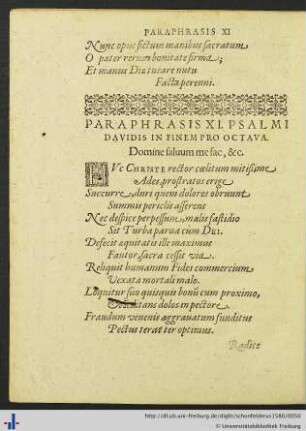 PARAPHRASIS XI
Nunc opus fictum manibus sacratum
O pater rerum bonitate firma;
Et manus Dia tueare nutu
Facta perenni.
PARAPHRASIS XI. PSALMI
DAVIDIS IN FINEM PRO OCTAVA.
Domine saluum me fac, &c.
HVc CHRISTE rector cœlitum mitissime
Ades, prostratos erige
Succurre, dure quem dolores obruunt
Summis periclis asserens
Nec despice perpessum, malis fastidio
Sit Turba parua cum DEI.
Defecit æquitatis ille maximus
Fautor, sacra cessit via.
Reliquit humanum Fides commercium
Vexata mortali malo.
Loquitur suo quisquis bonū cum proximo,
dolos in pectore
Fraudum venenis aggrauatum funditus
Pectus terat ter optimus.
Radice
http://dl.ub.uni-freiburg.de/diglit/schonfelderus1580/0050
© Universitätsbibliothek Freiburg